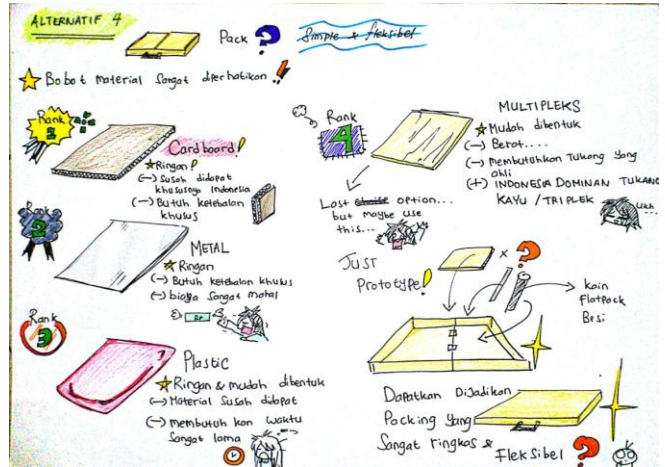 ALTERNATIF 4
Pack ?
Simple & fleksibel
Bobot material sangat diperhatikan !
Rank
1
Cardboard !
Ringan !
(-) Susah didapat
khususnya Indonesia
(-) Butuh ketebalan
khusus
Rank
2
METAL
Ringan
(-) Butuh ketebalan khusus
(-) biaya sangat mahal
Rank
3
Plastic
Ringan & mudah dibentuk
(-) Material susah didapat
(-) membutuh kan waktu
sangat lama
Rank
4
MULTIPLEKS
Mudah dibentuk
(-) Berat....
(-) Membutuhkan Tukang yang
ahli
(+) INDONESIA DOMINAN TUKANG
KAYU / TRIPLEK
Last option...
but maybe use
this...
JUST
Prototype !
x ?
kain
Flatpack
Besi
Dapatkan Dijadikan
Packing yang
Sangat ringkas &
Fleksibel ?